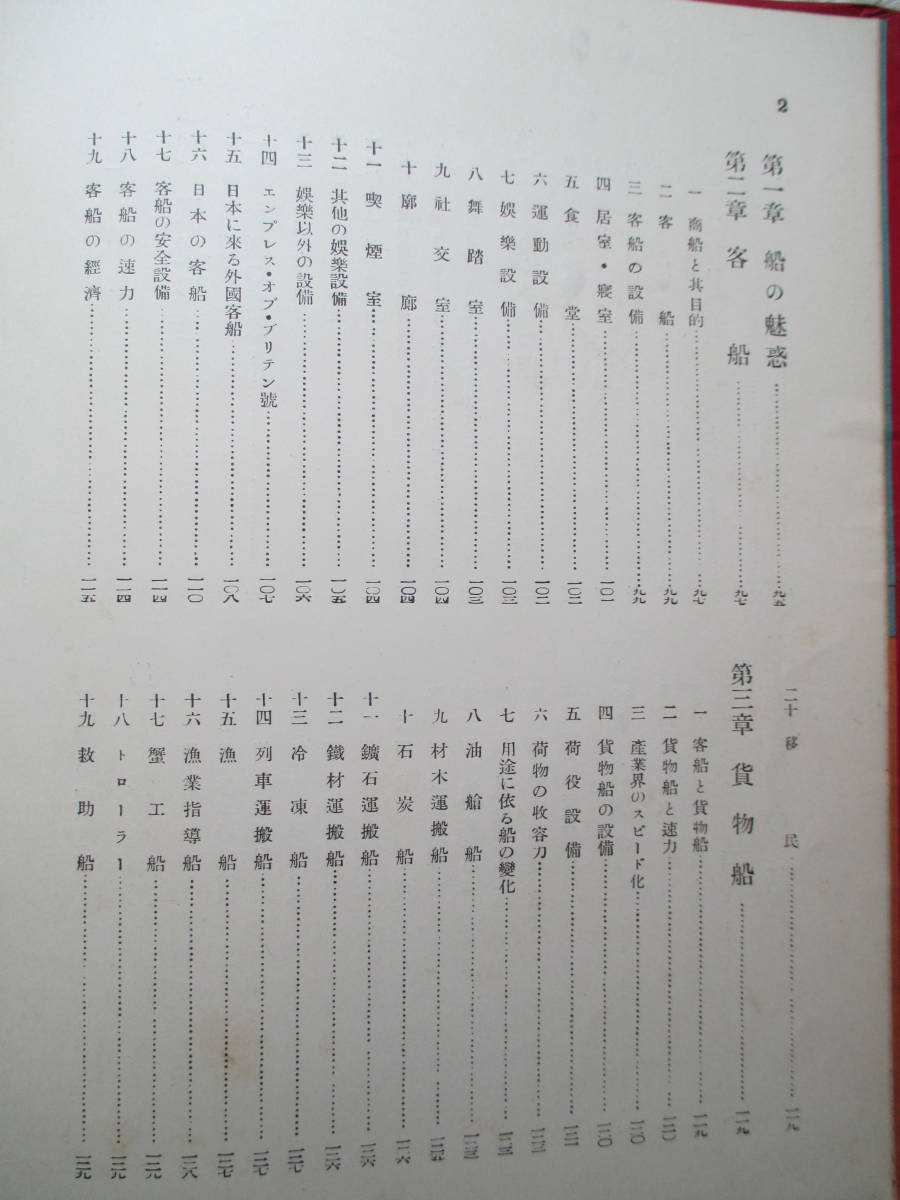 2
第一章 船の魅惑……九五
第二章 客船……九七
一 商船と其目的……九七
二 客船……九九
三 客船の設備……九九
四 居室・寢室……一〇一
五 食堂……一〇二
六 運動設備……一〇二
七 娯樂設備……一〇三
八 舞踏室……一〇三
九 社交室……一〇四
十 廊廊……一〇四
十一 喫煙室……一〇四
十二 其他の娯樂設備……一〇五
十三 娯樂以外の設備……一〇六
十四 エンプレス・オブ・ブリテン號……一〇七
十五 日本に來る外國客船……一〇八
十六 日本の客船……一一〇
十七 客船の安全設備……一一四
十八 客船の速力……一一四
十九 客船の經濟……一一五
二十 移民……一一九
第三章 貨物船……一一九
一 客船と貨物船……一一九
二 貨物船と速力……一二〇
三 產業界のスピード化……一二〇
四 貨物船の設備……一二〇
五 荷役設備……一二一
六 荷物の收容力
七 用途に依る船の變化
八 油艙船
九 材木運搬船
十 石炭船……一二六
十一 鑛石運搬船……一二六
十二 鐵材運搬船……一二六
十三 冷凍船……一二七
十四 列車運搬船……一二七
十五 漁船……一二七
十六 漁業指導船……一二八
十七 蟹工船……一二九
十八 トローラー……一二九
十九 救助船……一二九